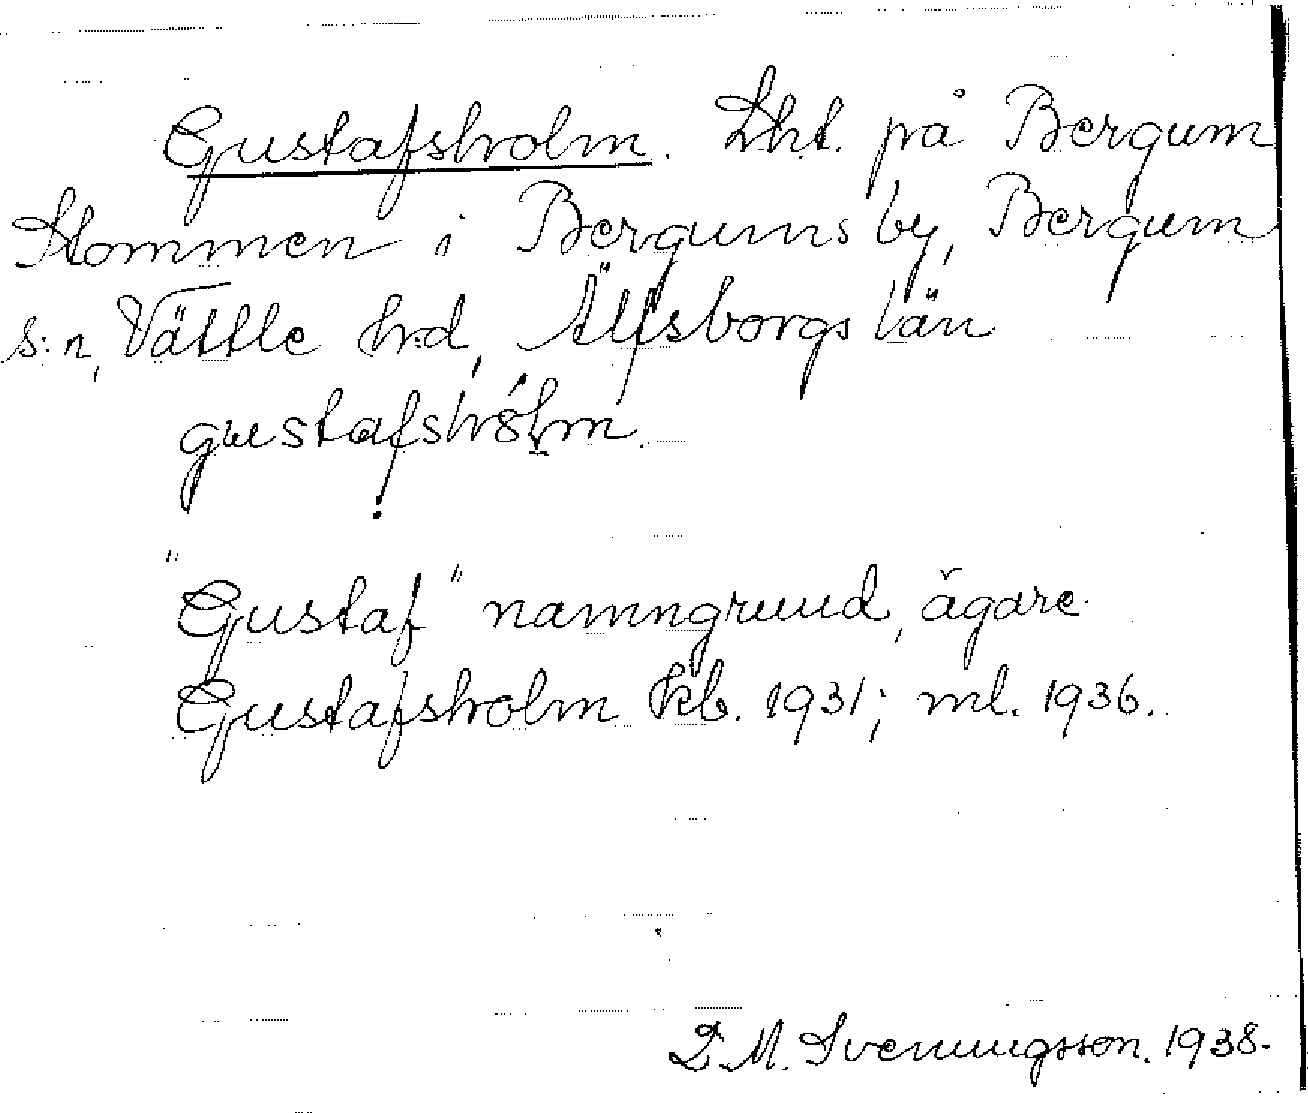 Gustafsholm. Lht. på Bergum
Stommen i Bergums by, Bergum
s:n, Vättle hd, Älfsborgs län
gustafshólm.
"Gustaf" namngrund, ägare.
Gustafsholm kb. 1931; ml. 1936.
D. M. Svenungsson. 1938.